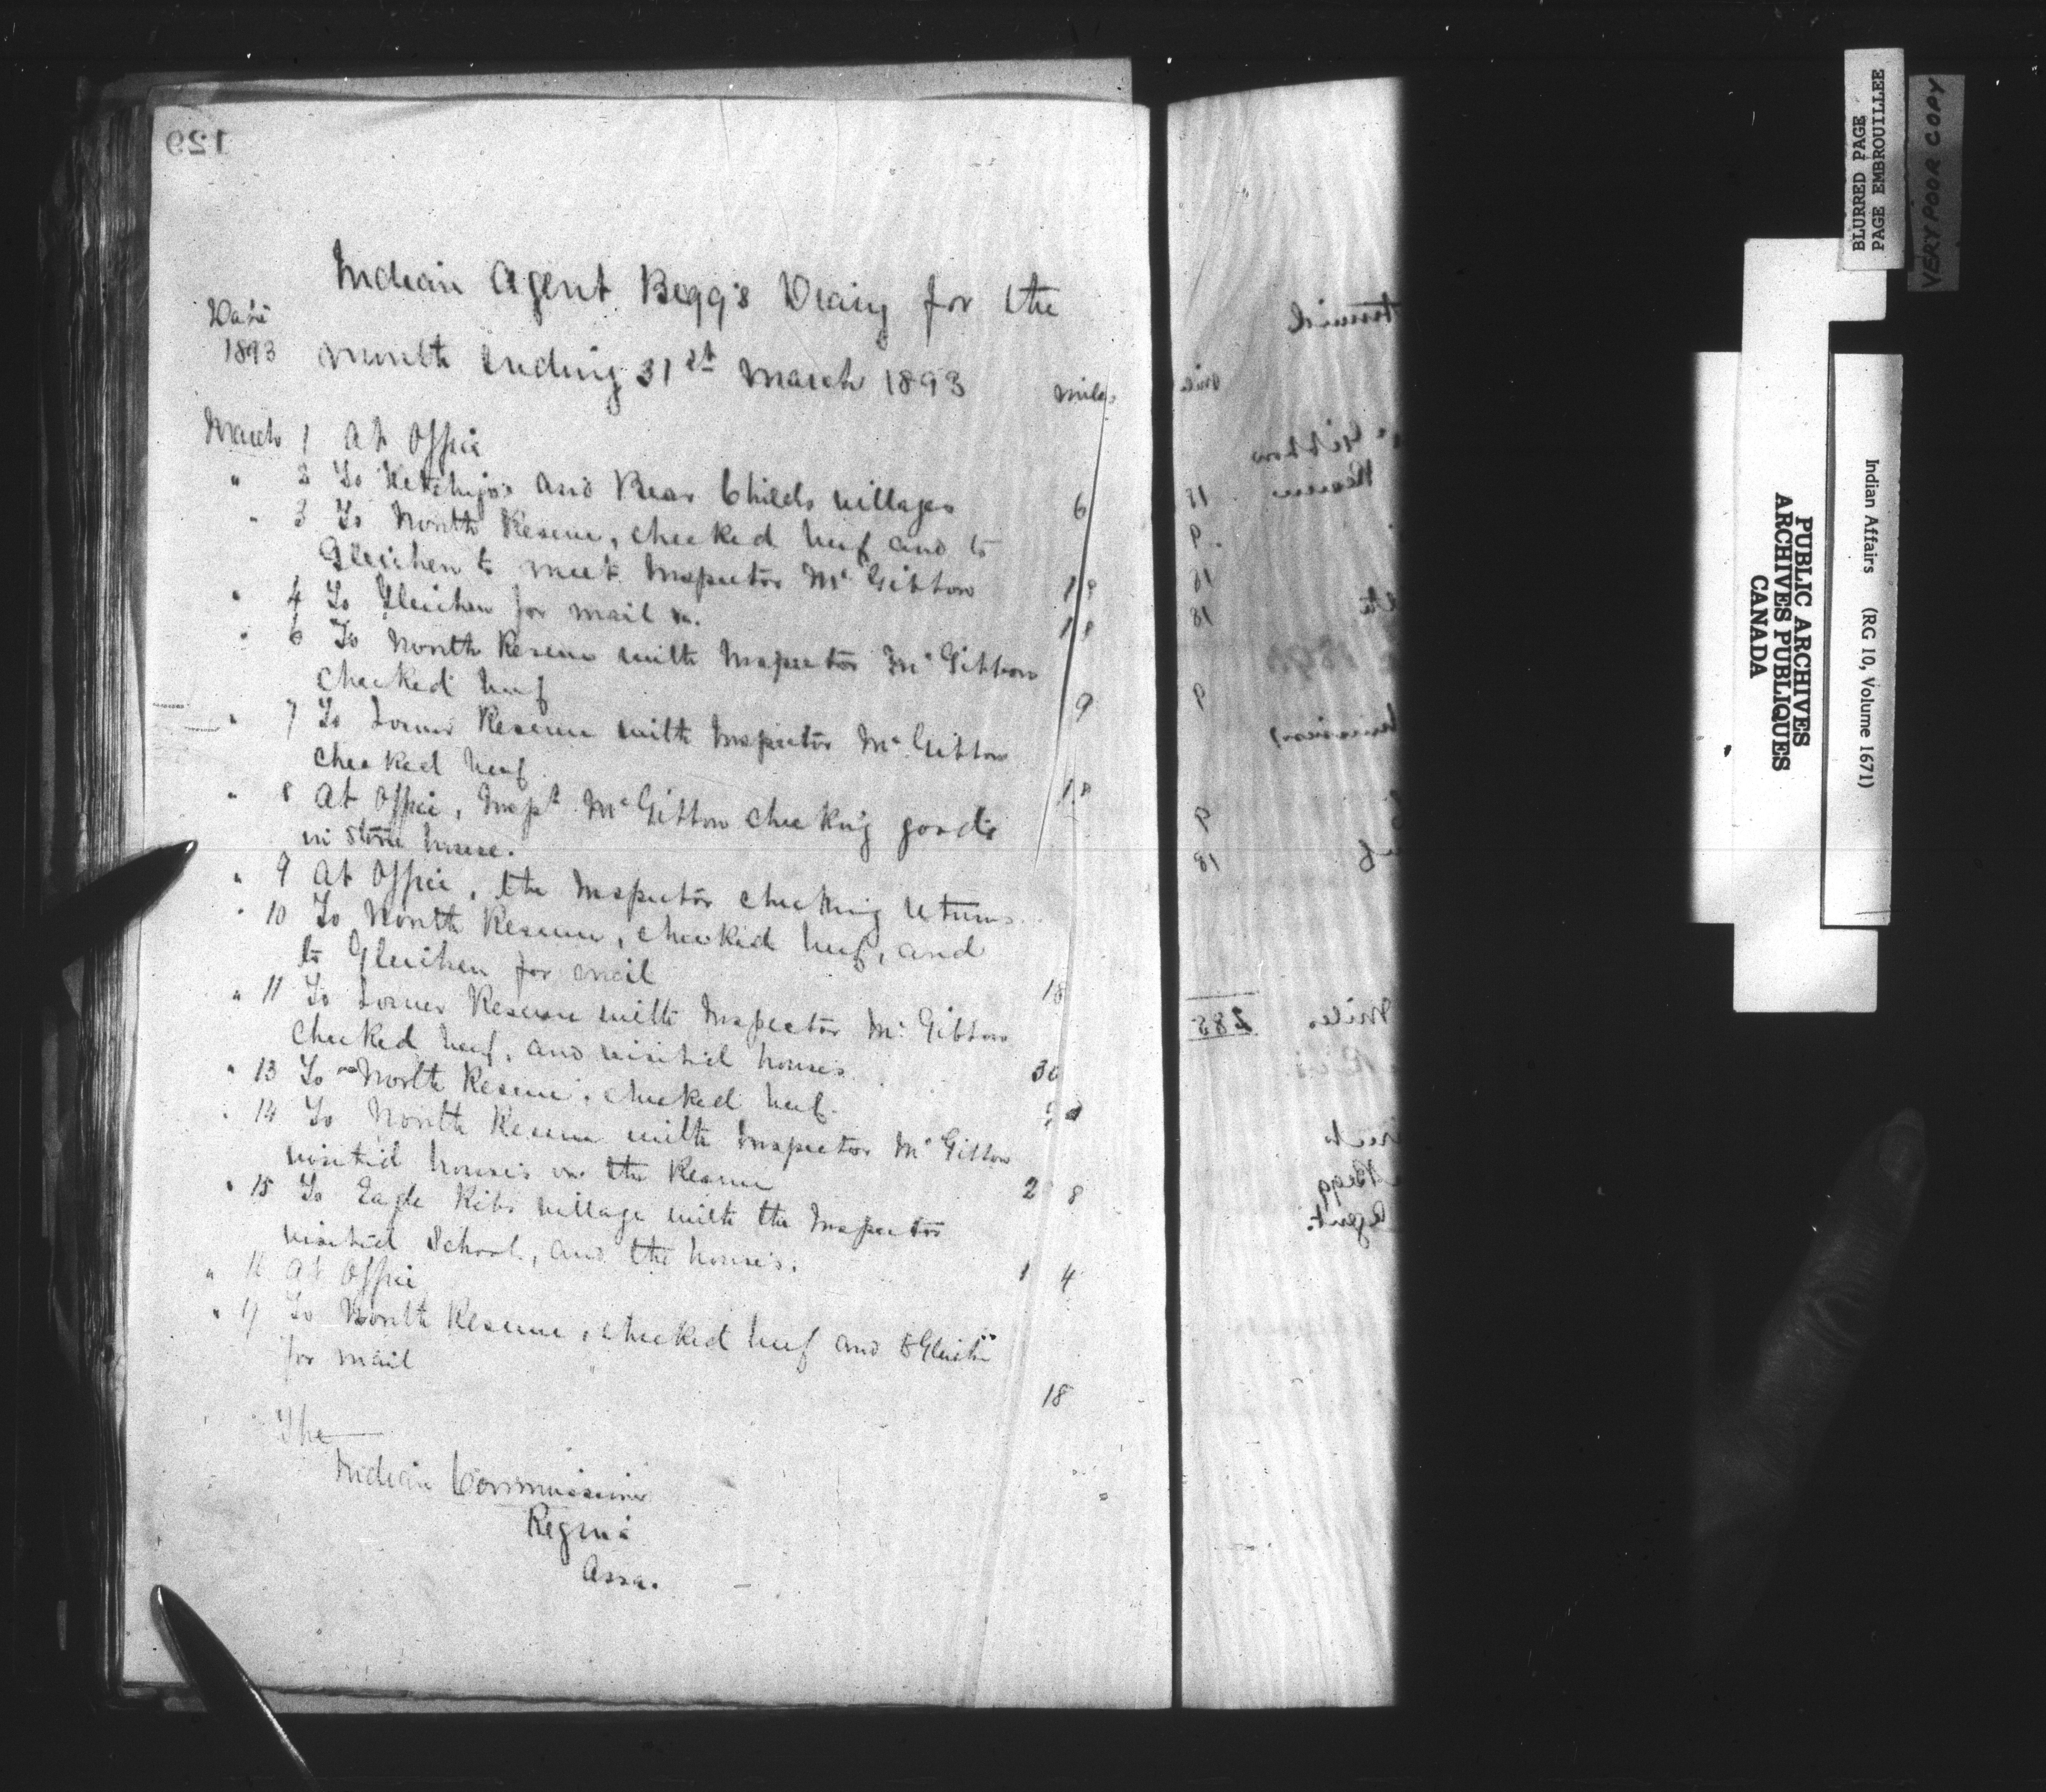 129
Indian Agent Begg's Diary for the
Date
1893 month ending 31st March 1893 miles
March 1 At Office
" 2 To and Bear Childs villages 6
" 3 To North Reserve, checked beef and to
Gleichen to meet Inspector McGibbon 18
" 4 To Gleichen for mail &c. 18
" 6 To North Reserve with Inspector McGibbon
checked beef 9
" 7 To Lower Reserve with Inspector McGibbon
checked beef 18
" 8 At Office, Inspr McGibbon checking goods
in store house.
" 9 At Office, the Inspector checking returns
" 10 To North Reserve, checked beef, and
to Gleichen for mail 18
" 11 To Lower Reserve with Inspector McGibbon
checked beef, and visited houses 30
" 13 To North Reserve, checked beef.
" 14 To North Reserve with Inspector McGibbon
visited houses on the Reserve 28
" 15 To Eagle Ribs village with the Inspector
visited School, and the houses. 14
" 16 At Office
" 17 To North Reserve, checked beef and to Gleichen
for mail 18
The
Indian Commissioner
Regina
Assa.
mile
McGibbon
Reserve 18
9
18
18
9
9
18
Miles 285
Begg
Agent.
BLURRED PAGE
PAGE EMBROUILLEE
VERY POOR COPY
PUBLIC ARCHIVES
ARCHIVES PUBLIQUES
CANADA
Indian Affairs (RG 10, Volume 1671)